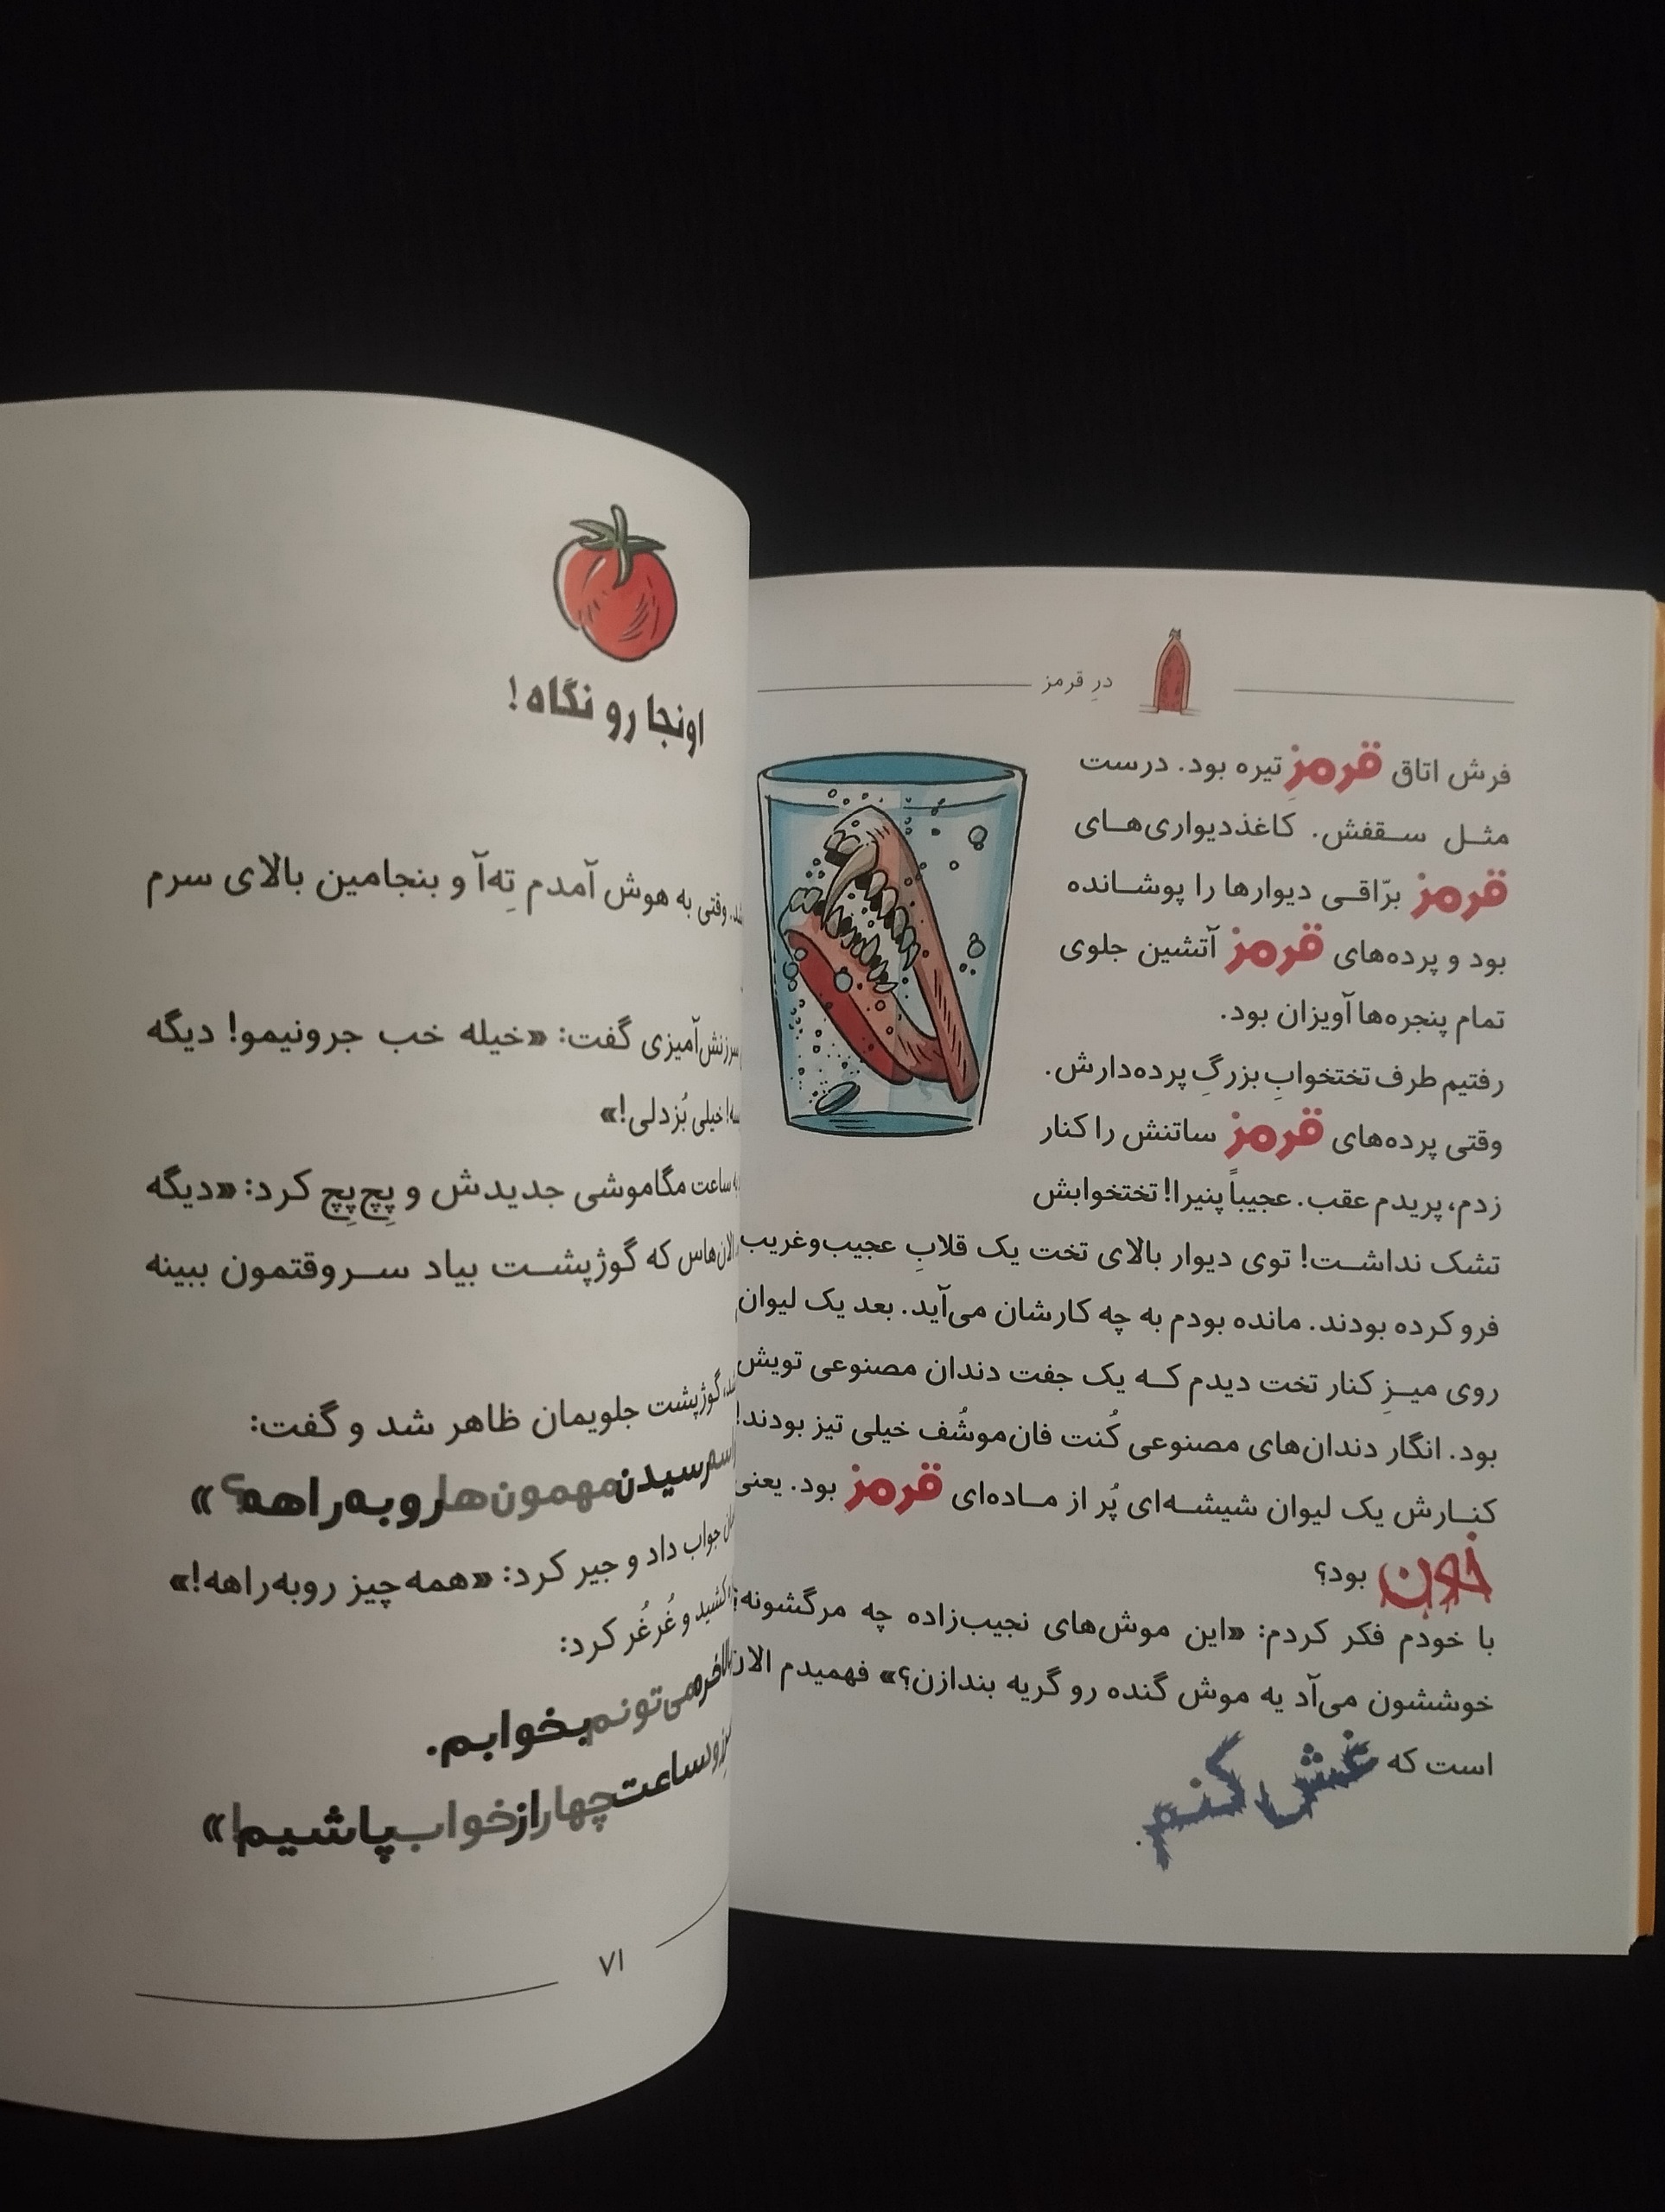 درِ قرمز
فرش اتاق قرمزِ تیره بود. درست
مثل سقفش. کاغذدیواری‌های
قرمز برّاقی دیوارها را پوشانده
بود و پرده‌های قرمز آتشین جلوی
تمام پنجره‌ها آویزان بود.
رفتیم طرف تختخوابِ بزرگِ پرده‌دارش.
وقتی پرده‌های قرمز ساتنش را کنار
زدم، پریدم عقب. عجیباً پنیرا! تختخوابش
تشک نداشت! توی دیوار بالای تخت یک قلابِ عجیب‌وغریب
فرو کرده بودند. مانده بودم به چه کارشان می‌آید. بعد یک لیوان
روی میزِ کنار تخت دیدم که یک جفت دندان مصنوعی تویش
بود. انگار دندان‌های مصنوعی کُنت فان‌موشُف خیلی تیز بودند!
کنارش یک لیوان شیشه‌ای پُر از ماده‌ای قرمز بود. یعنی
خون بود؟
با خودم فکر کردم: «این موش‌های نجیب‌زاده چه مرگشونه؟
خوششون می‌آد یه موش گنده رو گریه بندازن؟» فهمیدم الان
است که غش کنم.
اونجا رو نگاه!
وقتی به هوش آمدم تِه‌آ و بنجامین بالای سرم
سرزنش‌آمیزی گفت: «خیله خب جرونیمو! دیگه
خیلی بُزدلی!»
ساعت مگاموشی جدیدش و پِچ‌پِچ کرد: «دیگه
الان‌هاس که گوژپشت بیاد سروقتمون ببینه
گوژپشت جلویمان ظاهر شد و گفت:
رسیدن مهمون‌ها روبه‌راهه؟»
جواب داد و جیر کرد: «همه‌چیز روبه‌راهه!»
کشید و غُرغُر کرد:
بالاخره می‌تونم بخوابم.
ساعت چهار از خواب پاشیم!»
۷۱